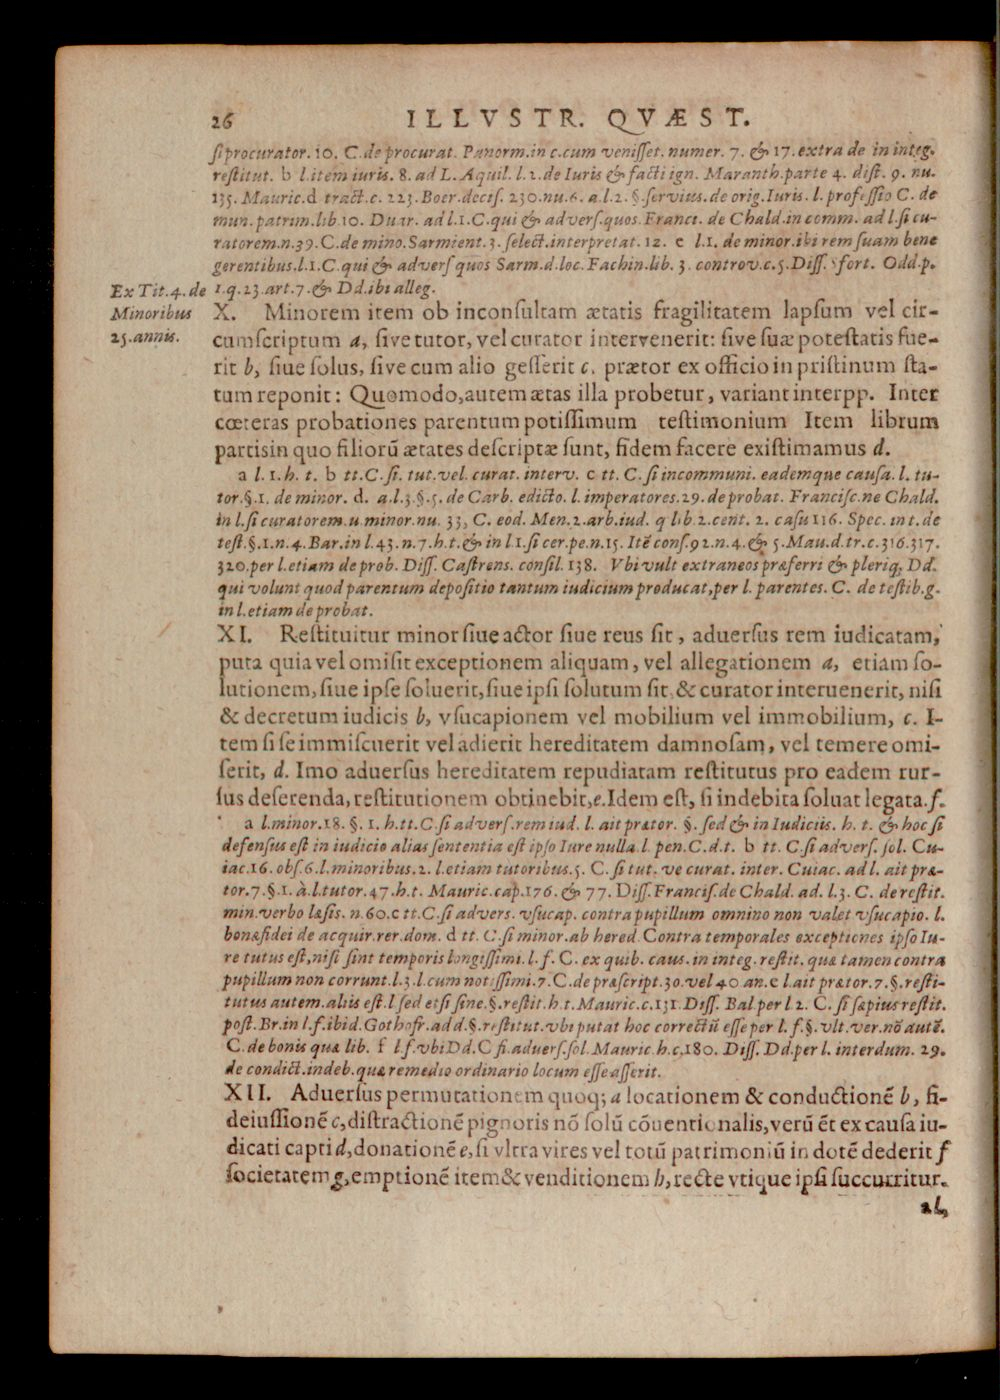 26 ILLVSTR. QVÆST.
ſi procurator. 10. C. de procurat. Panorm. in c. cum veniſſet. numer. 7. & 17. extra de in integ.
reſtitut. b l. item iuris. 8. ad L. Aquil. l. 2. de Iuris & facti ign. Maranth. parte 4. diſt. 9. nu.
135. Mauric. d tract. c. 223. Boer. deciſ. 230. nu. 6. a. l. 2. §. ſervius. de orig. Iuris. l. profeſſio C. de
mun. patrim. lib. 10. Duar. ad l. 1. C. qui & adverſ. quos. Franct. de Chald. in comm. ad l. ſi cu-
ratorem. n. 39. C. de mino. Sarmient. 3. ſelect. interpretat. 12. c l. 1. de minor. ibi rem ſuam bene
gerentibus. l. 1. C. qui & adverſ quos Sarm. d. loc. Fachin. lib. 3. controv. c. 5. Diſſ. fort. Odd. p.
1. q. 23. art. 7. & Dd. ibi alleg.
Ex Tit. 4. de
Minoribus
25. annis.
X. Minorem item ob inconſultam ætatis fragilitatem lapſum vel cir-
cumſcriptum a, ſive tutor, vel curator intervenerit: ſive ſuæ poteſtatis fue-
rit b, ſiue ſolus, ſive cum alio geſſerit c. prætor ex officio in priſtinum ſta-
tum reponit: Quomodo, autem ætas illa probetur, variant interpp. Inter
cœteras probationes parentum potiſſimum teſtimonium Item librum
partis in quo filiorū ætates deſcriptæ ſunt, fidem facere exiſtimamus d.
a l. 1. h. t. b tt. C. ſi. tut. vel. curat. interv. c tt. C. ſi in communi. eademque cauſa. l. tu-
tor. §. 1. de minor. d. a. l. 3. §. 5. de Carb. edicto. l. imperatores. 29. de probat. Franciſc. ne Chald.
in l. ſi curatorem. u. minor. nu. 33, C. eod. Men. 2. arb. iud. q lib. 2. cent. 2. caſu 116. Spec. in t. de
teſt. §. 1. n. 4. Bar. in l. 43. n. 7. h. t. & in l. 1. ſi cer. pe. n. 15. Itē conſ. 92. n. 4. & 5. Mau. d. tr. c. 316. 317.
320. per l. etiam de prob. Diſſ. Caſtrens. conſil. 138. Vbi vult extraneos præferri & pleriq; Dd.
qui volunt quod parentum depoſitio tantum iudicium producat, per l. parentes. C. de teſtib. g.
in l. etiam de probat.
XI. Reſtituitur minor ſiue actor ſiue reus ſit, aduerſus rem iudicatam,
puta quia vel omiſit exceptionem aliquam, vel allegationem a, etiam ſo-
lutionem, ſiue ipſe ſoluerit, ſiue ipſi ſolutum ſit, & curator interuenerit, niſi
& decretum iudicis b, vſucapionem vel mobilium vel immobilium, c. I-
tem ſi ſe immiſcuerit vel adierit hereditatem damnoſam, vel temere omi-
ſerit, d. Imo aduerſus hereditatem repudiatam reſtitutus pro eadem rur-
ſus deferenda, reſtitutionem obtinebit, e. Idem eſt, ſi indebita ſoluat legata. f.
a l. minor. 18. §. 1. h. tt. C. ſi adverſ. rem iud. l. ait prætor. §. ſed & in Iudiciis. h. t. & hoc ſi
defenſus eſt in iudicio alias ſententia eſt ipſo Iure nulla. l pen. C. d. t. b tt. C. ſi adverſ. ſol. Cu-
iac. 16. obſ. 6. l. minoribus. 2. l. etiam tutoribus. 5. C. ſi tut. ve curat. inter. Cuiac. ad l. ait præ-
tor. 7. §. 1. à. l. tutor. 47. h. t. Mauric. cap. 176. & 77. Diſſ. Franciſ. de Chald. ad. l. 3. C. de reſtit.
min. verbo læſis. n. 60. c tt. C. ſi advers. vſucap. contra pupillum omnino non valet vſucapio. l.
bonæ fidei de acquir. rer. dom. d tt. C. ſi minor. ab hered. Contra temporales exceptiones ipſo Iu-
re tutus eſt, niſi ſint temporis longiſſimi. l. f. C. ex quib. caus. in integ. reſtit. quæ tamen contra
pupillum non corrunt. l. 3. l. cum notiſſimi. 7. C. de præſcript. 30. vel 40 an. e l. ait prætor. 7. §. reſti-
tutus autem. aliis eſt. l ſed etſi ſine. §. reſtit. h. t. Mauric. c. 151. Diſſ. Bal per l 2. C. ſi ſæpius reſtit.
poſt. Br. in l. f. ibid. Gothofr. add. §. reſtitut. vbi putat hoc correctū eſſe per l. f. §. vlt. ver. nō autē.
C. de bonis quæ lib. f l. f. vbi Dd. C ſi. adverſ. ſol. Mauric. h. c. 180. Diſſ. Dd. per l. interdum. 29.
de condict. indeb. quæ remedio ordinario locum eſſe aſſerit.
XII. Aduerſus permutationem quoq; a locationem & conductionē b, fi-
deiuſſionē c, diſtractionē pignoris nō ſolū cōuentionalis, verū ēt ex cauſa iu-
dicati capti d, donationē e, ſi vltra vires vel totū patrimoniū in dotē dederit f
ſocietatem g, emptionē item & venditionem h, recte vtique ipſi ſuccurritur.
a l,